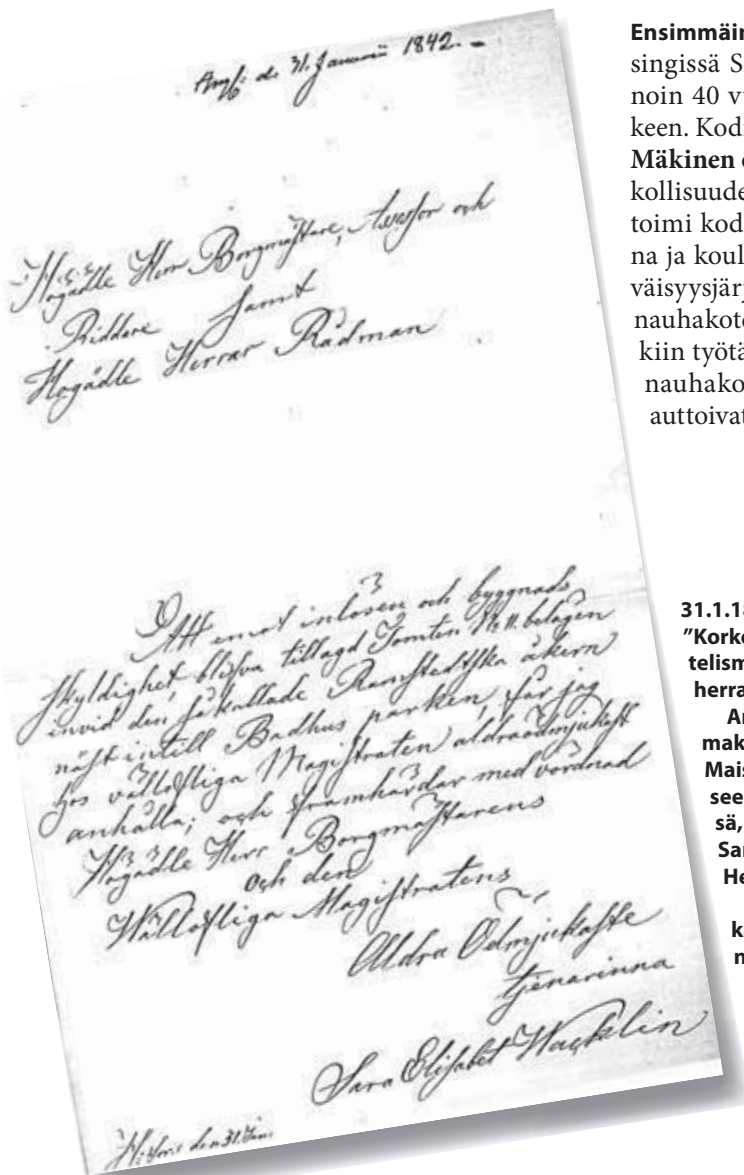 Angf: d. 31. Januarii 1842. -
Högädle Herr Borgmästare, Assessor och
Riddare samt
Högädle Herrar Rådman
Att emot inlösen och byggnads
skyldighet, blifva tillagd Tomten N: 11. belägen
invid den så kallade Ramstedtska åkern
näst intill Badhus parken, får jag
hos vällofliga Magistraten aldraödmjukast
anhålla; och framhärdar med vördnad
Högädle Herr Borgmästarens
och den
Wällofliga Magistratens
Aldra Ödmjukaste
tjenarinna
Sara Elisabet Wacklin
H:fors den 31. Jan:
Ensimmäin
singissä S
noin 40 v
keen. Kod
Mäkinen
kollisuude
toimi kod
na ja koul
väisyysjärj
nauhakot
kiin työtä
nauhako
auttoivat
31.1.18
”Korke
telism
herra
A
mak
Mais
see
sä,
Sar
He
k
n